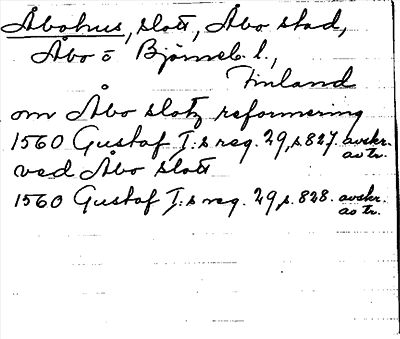 Åbohus, slott, Åbo stad,
Åbo o Björneb. l.,
Finland
om Åbo slotz reformering
1560 Gustaf I:s reg. 29, s. 827. avskr. av tr.
ved Åbo slott
1560 Gustaf I:s reg. 29, s. 828. avskr. av tr.